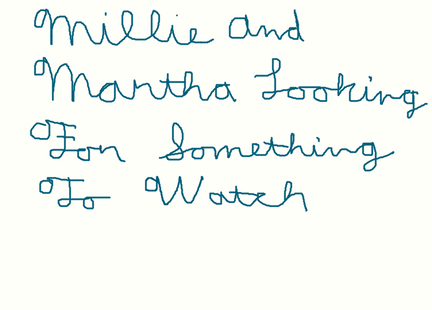 Millie and
Martha Looking
For Something
To Watch